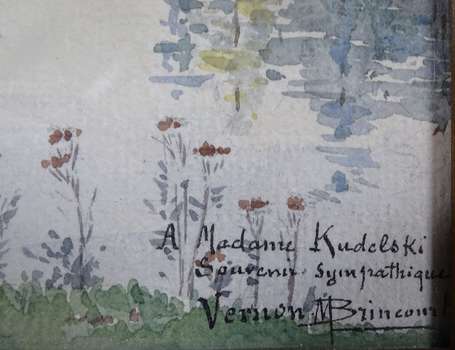 A Madame Kudelski
Souvenir sympathique
Vernon M Brincourt